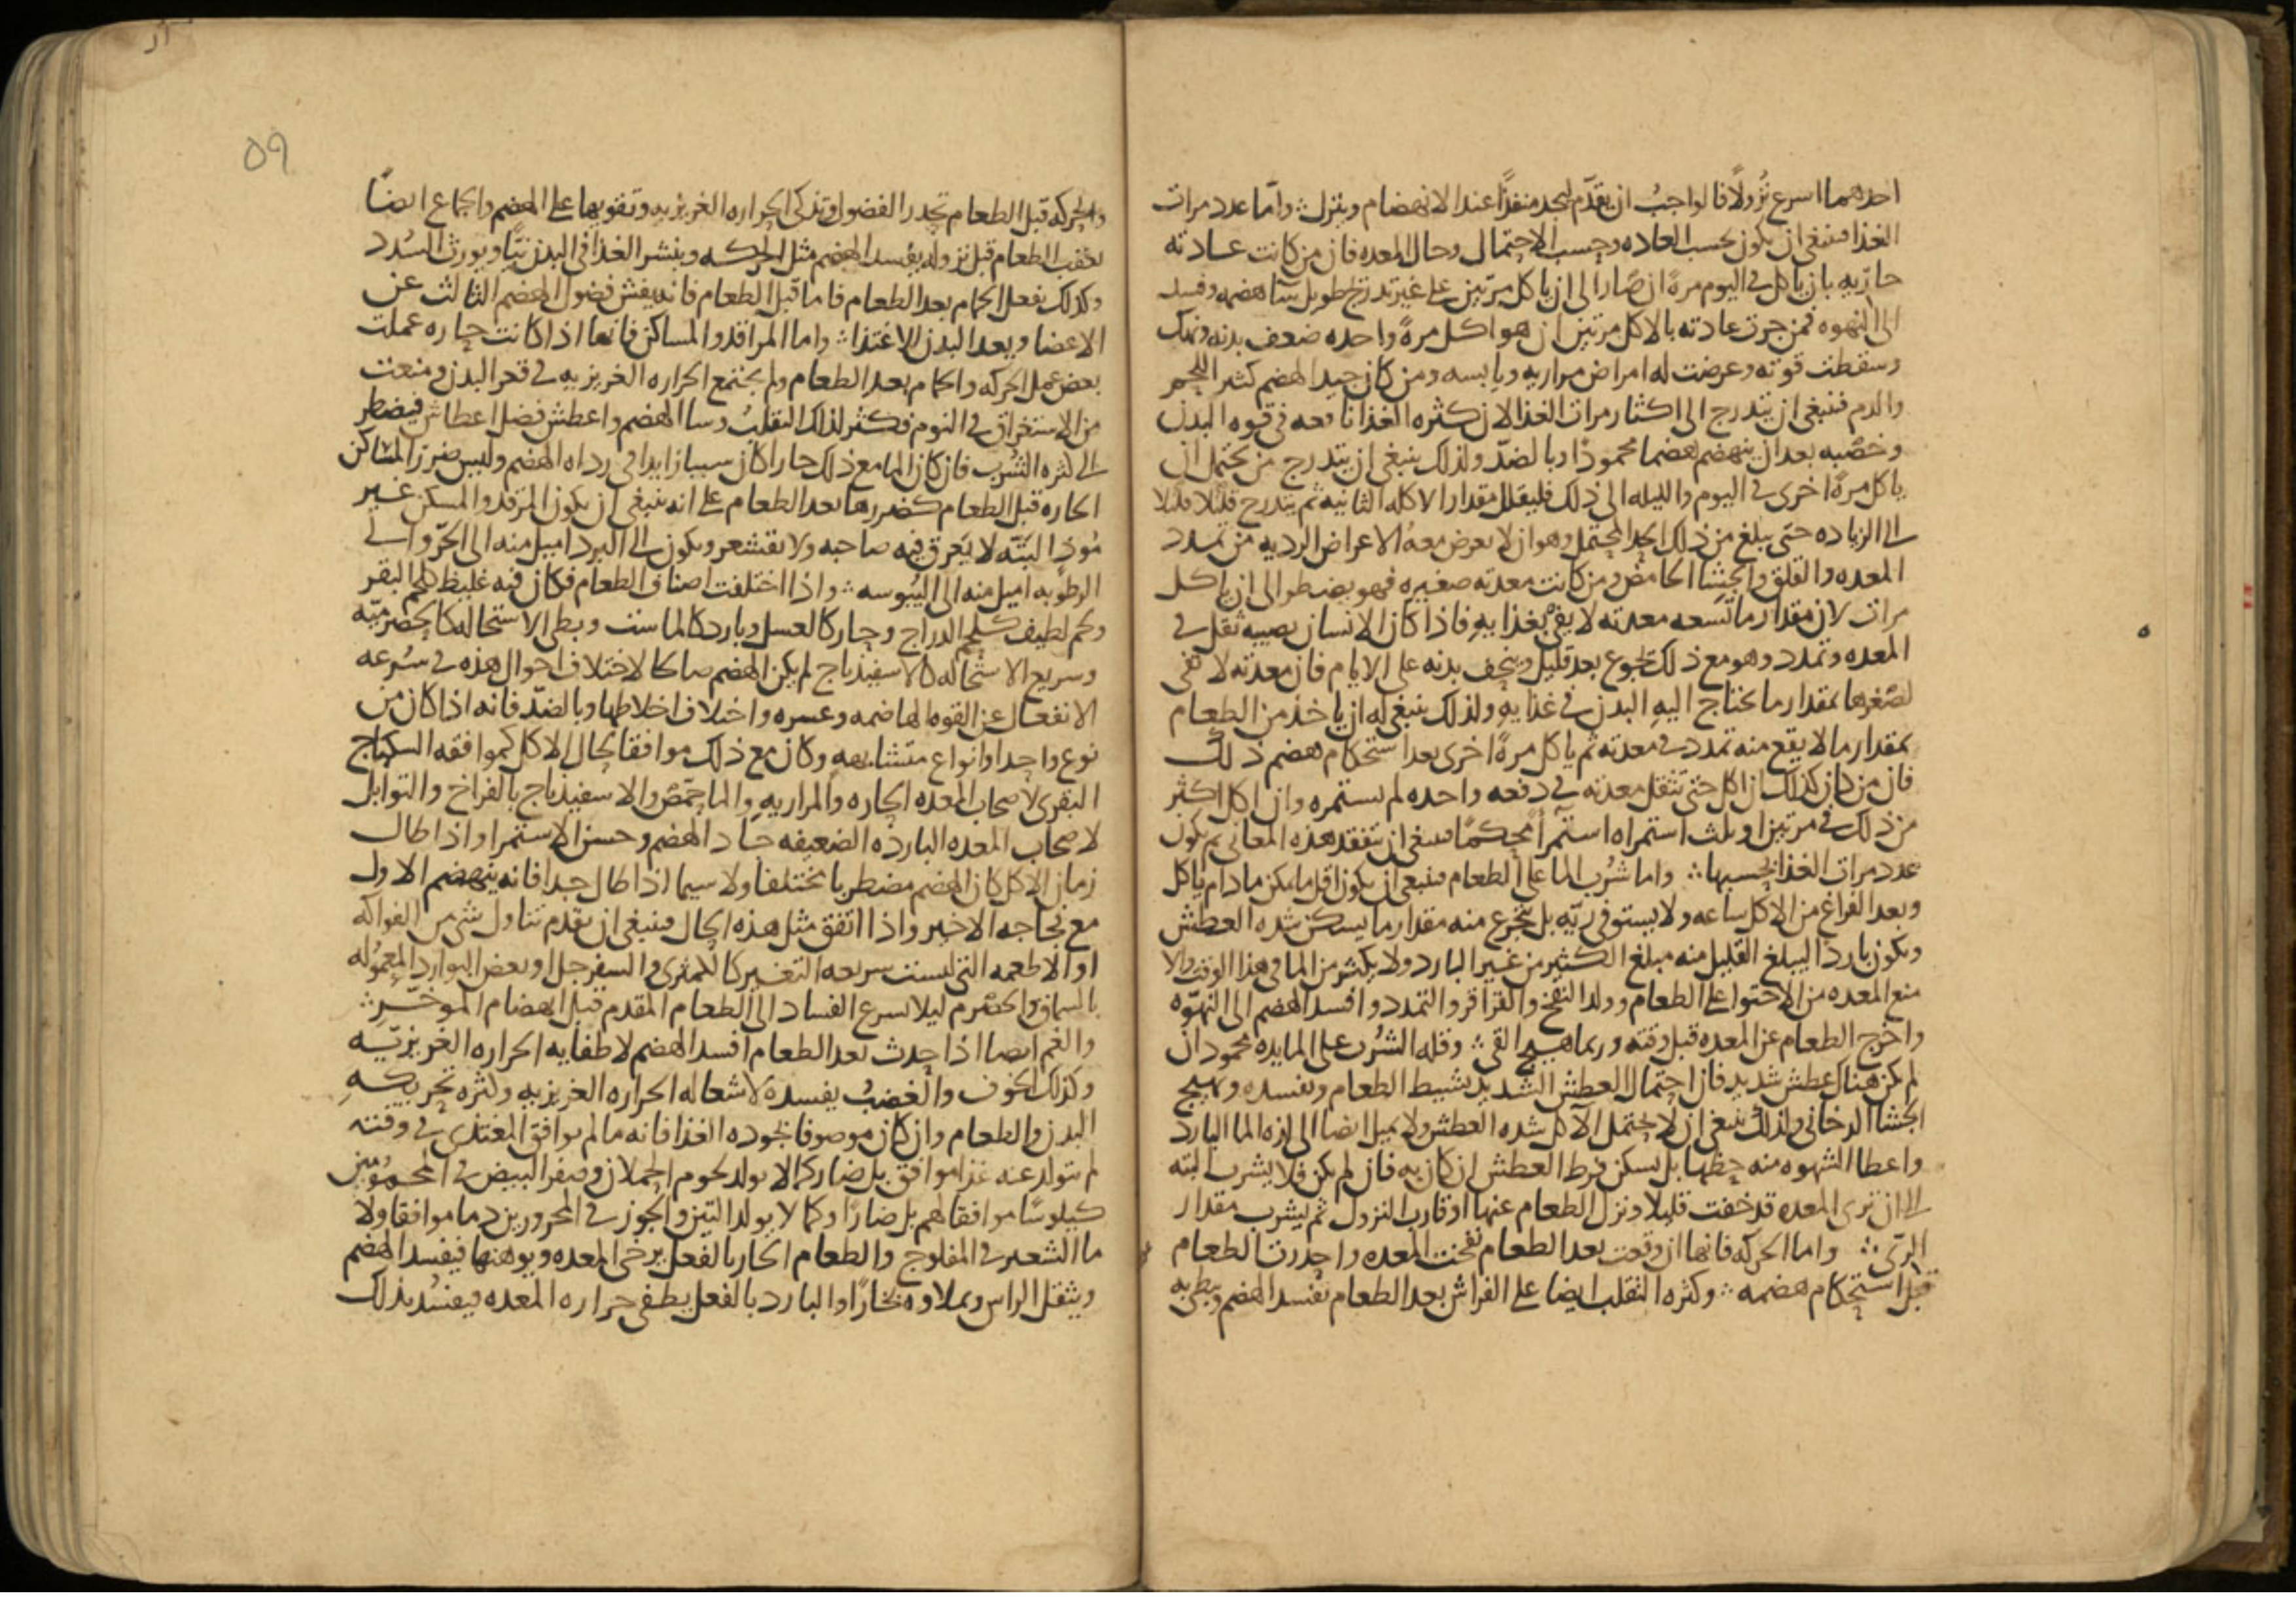 احدهما اسرع نزولًا فالواجبُ ان يقدّم ليجد منفذًا عند الانهضام وينزل ؞ وامّا عدد مرات
الغذا فينبغى ان يكون بحسب العاده وبحسب الاحتمال وحال المعده فان من كانت عادته
جاريه بان ياكل فى اليوم مرهً ان صار الى ان ياكل مرّتين على غير تدرج طويل سآ هضمه وفسد
الى النهوه فمن جرت عادته بالاكل مرتين ان هو اكل مرهً واحده ضعف بدنه ونهك
وسقطت قوته وعرضت له امراض مراريه ويابسه ومن كان جيد الهضم كثير اللحم
والدم فينبغى ان يتدرج الى اكثار مرات الغذا لان كثره الغذا نافعه فى قوه البدن
وخصبه بعد ان ينهضم هضما محمودًا وبالضدّ ولذلك ينبغى ان يتدرج من يحتمل ان
ياكل مرهً اخرى فى اليوم والليله الى ذلك فليقلل مقدار الاكله الثانيه ثم يتدرج قليلا قليلا
الى الزياده حتى يبلغ من ذلك الحد المحتمل وهو ان لا يعرض معهُ الاعراض الرديه من تمدد
المعده والقلق والجشا الحامض ومن كانت معدته صغيره فهو يضطر الى ان ياكل
مرات لان مقدار ما تسعه معدته لا يفى بغذايه فاذا كان الانسان يصيبه ثقل فى
المعده وتمدد وهو مع ذلك يجوع بعد قليل وينحف بدنه على الايام فان معدته لا تفى
لصغرها بمقدار ما يحتاج اليه البدن فى غذايه ولذلك ينبغى له ان ياخذ من الطعام
بمقدار ما لا يقع منه تمدد فى معدته ثم ياكل مرهً اخرى بعد استحكام هضم ذلك
فان من كان كذلك ان اكل حتى تثقل معدته فى دفعه واحده لم يستمره وان اكل اكثر
من ذلك فى مرتين او ثلث استمراه استمرآ محكمًا فينبغى ان يتفقد هذه المعانى ثم يكون
عدد مرات الغذا بحسبها ؞ واما شُرب الما على الطعام فينبغى ان يكون اقل ما يمكن ما دام ياكل
وبعد الفراغ من الاكل ساعه ولا يستوفى ريّه بل يتجرع منه مقدار ما يسكن شده العطش
ويكون باردا ليبلغ القليل منه مبلغ الكثير من غير البارد ولا يكثر من الما فى هذا الوقت والا
منع المعده من الاحتوا على الطعام وولد النفخ والقراقر والتمدد وافسد الهضم الى النهوّه
واخرج الطعام عن المعده قبل وقته وربما هيج القىء ؞ وقله الشُرب على المايده محمود ان
لم يكن هناك عطش شديد فان احتمال العطش الشديد يشيط الطعام ويفسده ويهيج
الجشا الدخانى ولذلك ينبغى ان لا يحتمل الآكل شده العطش ولا يميل ايضا الى لذه الما البارد
واعطا الشهوه منه حظها بل يسكن فرط العطش ان كان به فان لم يكن فلا يشرب البته
الى ان ترى المعده قد خفت قليلا ونزل الطعام عنها او قارب النزول ثم ليشرب مقدار
الرّى ؞ واما الحركه فانها ان وقعت بعد الطعام نفخت المعده واحدرت الطعام
قبل استحكام هضمه ؞ وكثره التقلب ايضا على الفراش بعد الطعام تفسد الهضم وتبطى به
٥٩
والحركه قبل الطعام تحدر الفضول وتذكى الحراره الغريزيه وتقويها على الهضم والجماع ايضًا
بعقب الطعام قبل نزوله يفسد الهضم مثل الحركه وينشر الغذا فى البدن نيًّا ويورث السُدد
وكذلك يفعل الحمام بعد الطعام فاما قبل الطعام فانه يفش فضول الهضم الثالث عن
الاعضا ويعد البدن للاغتذا ؞ واما المراقد والمساكن فانها اذا كانت حاره عملت
بعض عمل الحركه والحمام بعد الطعام ولم يجتمع الحراره الغريزيه فى قعر البدن ومنعت
من الاستغراق فى النوم فكثر لذلك التقلبُ وسا الهضم واعطش فضل اعطاش فيضطر
الى كثره الشُرب فان كان الما مع ذلك حارا كان سببا زايدا فى رداه الهضم وليس ضرر المساكن
الحاره قبل الطعام كضررها بعد الطعام على انه ينبغى ان يكون المرقد والمسكن غير
مُوذٍ البتّه لا يَعرق فيه صاحبه ولا يقشعر ويكون الى البرد اميل منه الى الحَرّ والى
الرطوبه اميل منه الى اليُبوسه ؞ واذا اختلفت اصناف الطعام فكان فيه غليظ كلحم البقر
ولحم لطيف كلحم الدراج وحار كالعسل وبارد كالماست وبطى الاستحاله كالحصرميّه
وسريع الاستحاله كالاسفيذباج لم يكن الهضم صالحا لاختلاف احوال هذه فى سُرعه
الانفعال عن القوه الهاضمه وعسره واختلاف اخلاطها وبالضدّ فانه اذا كان من
نوع واحد او انواع متشابهه وكان مع ذلك موافقا لحال الاكل كموافقه السكباج
البقرى لاصحاب المعده الحاره والمراريه والماحمّض والاسفيذباج بالفراخ والتوابل
لاصحاب المعده البارده الضعيفه جاد الهضم وحسن الاستمرا واذا طال
زمان الاكل كان الهضم مضطربا مختلفا ولا سيما اذا طال جدا فانه ينهضم الاول
مع فجاجه الاخير واذا اتفق مثل هذه الحال فينبغى ان يقدم تناول شى من الفواكه
او الاطعمه التى ليست سريعه التغير كالكمثرى والسفرجل وبعض البوارد المعمُوله
بالسماق والحصرم ليلا يسرع الفساد الى الطعام المقدم قبل انهضام الموخّر ؞
والغم ايضا اذا حدث بعد الطعام افسد الهضم لاطفايه الحراره الغريزيّه
وكذلك الخوف والغضبُ يفسده لاشعاله الحراره الغريزيه وكثره تحريكهِ
البدن والطعام وان كان موصوفا بجوده الغذا فانه ما لم يوافق المغتذى فى وقته
لم يتولد عنه غذا موافق بل ضار كما لا يولد لحوم الحملان وصفر البيض فى المحمُومين
كيلوسًا موافقا لهم بل ضارًا وكما لا يولد التين والجوز فى المحرورين دما موافقا ولا
ما الشعير فى المفلوج والطعام الحار بالفعل يرخى المعده ويوهنها فيفسد الهضم
ويثقل الراس ويملاوه بخارًا والبارد بالفعل يطفى حراره المعده ويفسُد بذلك